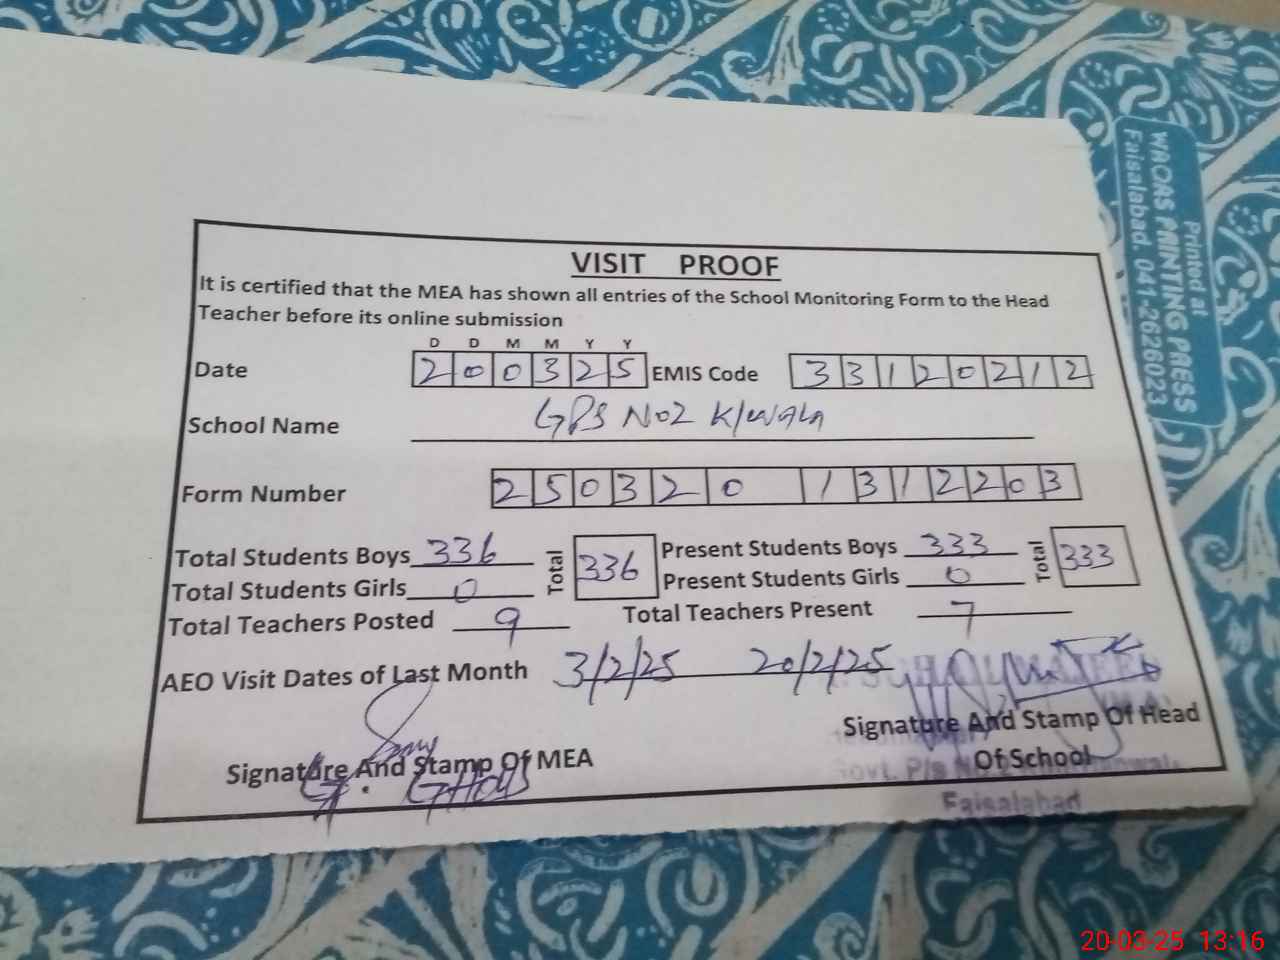 Printed at
WAQAS PRINTING PRESS
Faisalabad. 041-2626023
VISIT PROOF
It is certified that the MEA has shown all entries of the School Monitoring Form to the Head
Teacher before its online submission
D D M M Y Y
Date 2 0 0 3 2 5 EMIS Code 3 3 1 2 0 2 1 2
School Name GPS No2 K/wala
Form Number 2 5 0 3 2 0 1 3 1 2 2 0 3
Total Students Boys 336 Total 336 Present Students Boys 333 Total 333
Total Students Girls 0 Present Students Girls 0
Total Teachers Posted 9 Total Teachers Present 7
AEO Visit Dates of Last Month 3/2/25 20/2/25
Signature And Stamp Of Head
Of School
Signature And Stamp Of MEA
Govt. P/S No.2
Faisalabad
20-03-25 13:16